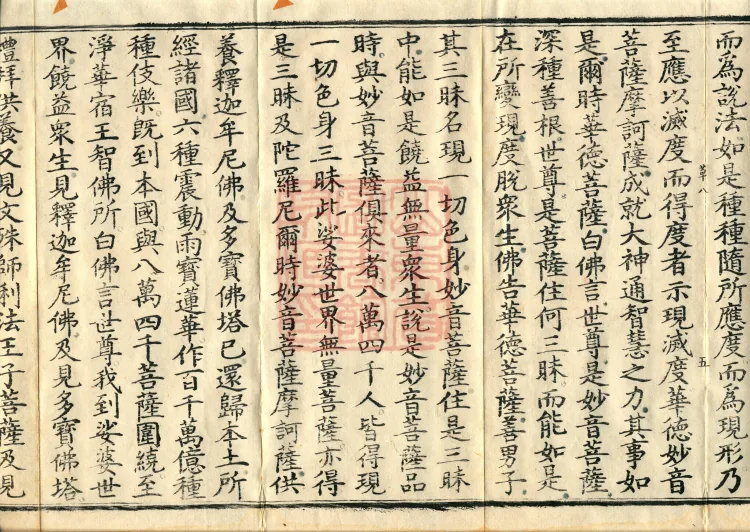 而為說法如是種種隨所應度而為現形乃
至應以滅度而得度者示現滅度華德妙音
菩薩摩訶薩成就大神通智慧之力其事如
是爾時華德菩薩白佛言世尊是妙音菩薩
深種善根世尊是菩薩住何三昧而能如是
在所變現度脫衆生佛告華德菩薩善男子
其三昧名現一切色身妙音菩薩住是三昧
中能如是饒益無量衆生說是妙音菩薩品
時與妙音菩薩俱來者八萬四千人皆得現
一切色身三昧此娑婆世界無量菩薩亦得
是三昧及陀羅尼爾時妙音菩薩摩訶薩供
養釋迦牟尼佛及多寶佛塔已還歸本土所
經諸國六種震動雨寶蓮華作百千萬億種
種伎樂旣到本國與八萬四千菩薩圍繞至
淨華宿王智佛所白佛言世尊我到娑婆世
界饒益衆生見釋迦牟尼佛及見多寶佛塔
禮拜供養又見文殊師利法王子菩薩及見
五